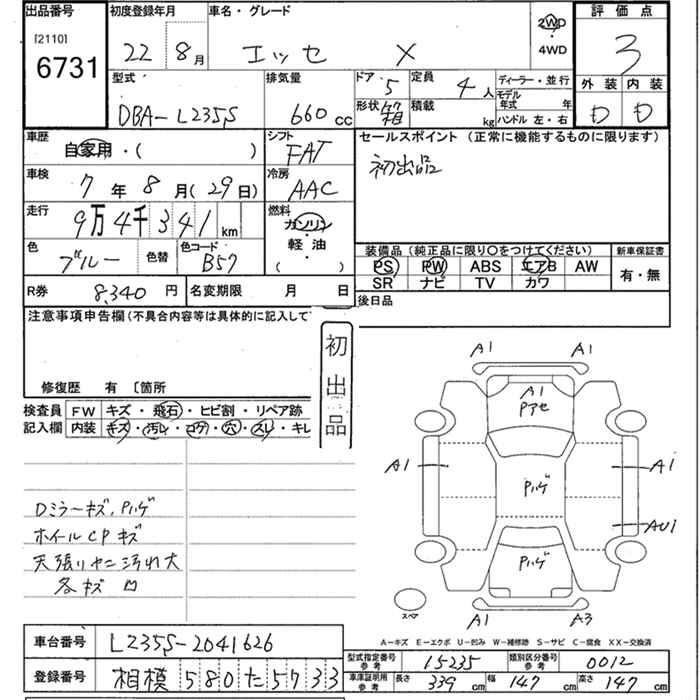 出品番号
[2110]
6731
初度登録年月
22 8月
車名・グレード
エッセ X
2WD
・
4WD
評価点
3
外装 内装
D D
型式
DBA-L235S
排気量
660 cc
ドア 5
形状 箱
定員 4人
積載 kg
ディーラー・並行
モデル年式 年
ハンドル 左・右
車歴
自家用・( )
シフト
FAT
セールスポイント (正常に機能するものに限ります)
初出品
車検
7年8月(29日)
冷房
AAC
走行
9万4千341km
燃料
ガソリン
軽・油
( )
色
ブルー
色替
色コード
B57
装備品 (純正品に限り○をつけてください)
PS PW ABS エアB AW
SR ナビ TV カワ
新車保証書
有・無
R券 8,340円
名変期限 月 日
後日品
注意事項申告欄(不具合内容等は具体的に記入して
修復歴 有 〔箇所
初出品
検査員記入欄
FW キズ・飛石・ヒビ割・リペア跡
内装 キズ・汚レ・コゲ・穴・スレ・キレ
Dミラーキズ、Pハゲ
ホイールCPキズ
天張リヤニ汚れ大
各キズ凹
A1 A1
A1
Pアセ
A1 Pハゲ A1
AU1
Pハゲ
スペア
A1 A3
A-キズ E-エクボ U-凹み W-補修跡 S-サビ C-腐食 XX-交換済
車台番号 L235S-2041626
登録番号 相模580た5733
型式指定番号 参考 15235 類別区分番号 参考 0012
車庫証明用 参考 長さ 339cm 幅 147cm 高さ 147cm